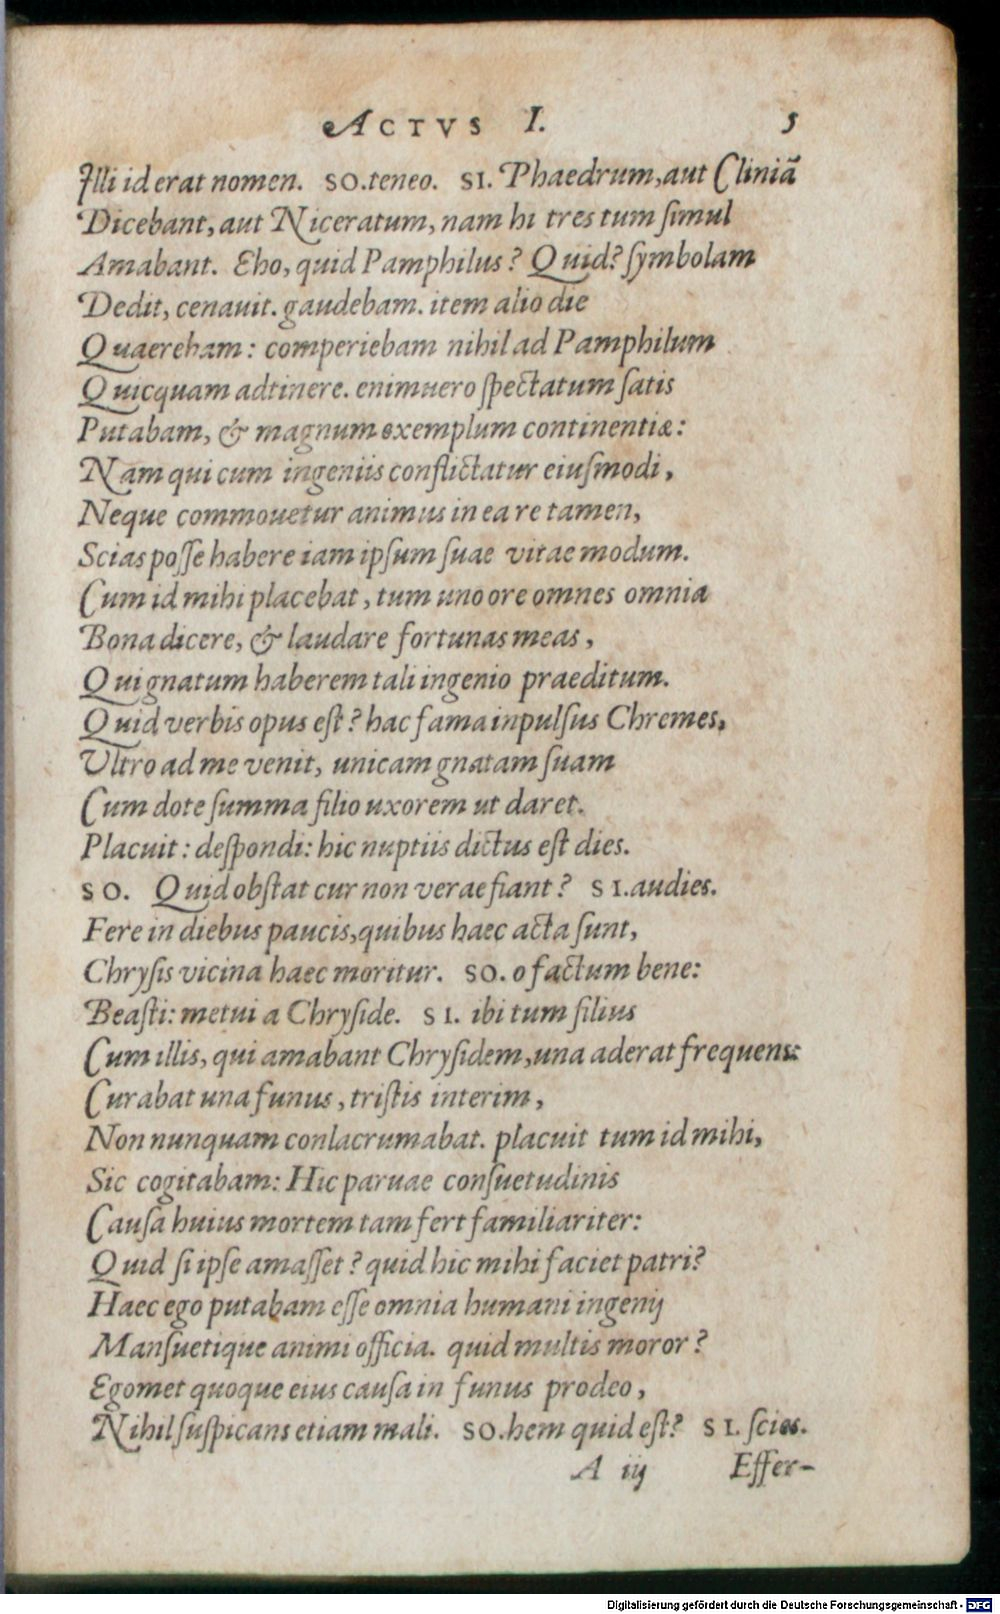 ACTVS I. 5
Illi id erat nomen. SO. teneo. SI. Phaedrum, aut Cliniā
Dicebant, aut Niceratum, nam hi tres tum ſimul
Amabant. Eho, quid Pamphilus? Quid? ſymbolam
Dedit, cenauit. gaudebam. item alio die
Quaerebam: comperiebam nihil ad Pamphilum
Quicquam adtinere. enimuero ſpectatum ſatis
Putabam, & magnum exemplum continentiæ:
Nam qui cum ingeniis conflictatur eiuſmodi,
Neque commouetur animus in ea re tamen,
Scias poſſe habere iam ipſum ſuae vitae modum.
Cum id mihi placebat, tum uno ore omnes omnia
Bona dicere, & laudare fortunas meas,
Qui gnatum haberem tali ingenio praeditum.
Quid verbis opus eſt? hac fama inpulſus Chremes,
Vltro ad me venit, unicam gnatam ſuam
Cum dote ſumma filio uxorem ut daret.
Placuit: deſpondi: hic nuptiis dictus eſt dies.
SO. Quid obſtat cur non verae fiant? SI. audies.
Fere in diebus paucis, quibus haec acta ſunt,
Chryſis vicina haec moritur. SO. o factum bene:
Beaſti: metui a Chryſide. SI. ibi tum filius
Cum illis, qui amabant Chryſidem, una aderat frequens:
Curabat una funus, triſtis interim,
Non nunquam conlacrumabat. placuit tum id mihi,
Sic cogitabam: Hic paruae conſuetudinis
Cauſa huius mortem tam fert familiariter:
Quid ſi ipſe amaſſet? quid hic mihi faciet patri?
Haec ego putabam eſſe omnia humani ingenij
Manſuetique animi officia. quid multis moror?
Egomet quoque eius cauſa in funus prodeo,
Nihil ſuſpicans etiam mali. SO. hem quid eſt? SI. ſcies.
A iij Effer-
Digitalisierung gefördert durch die Deutsche Forschungsgemeinschaft - DFG